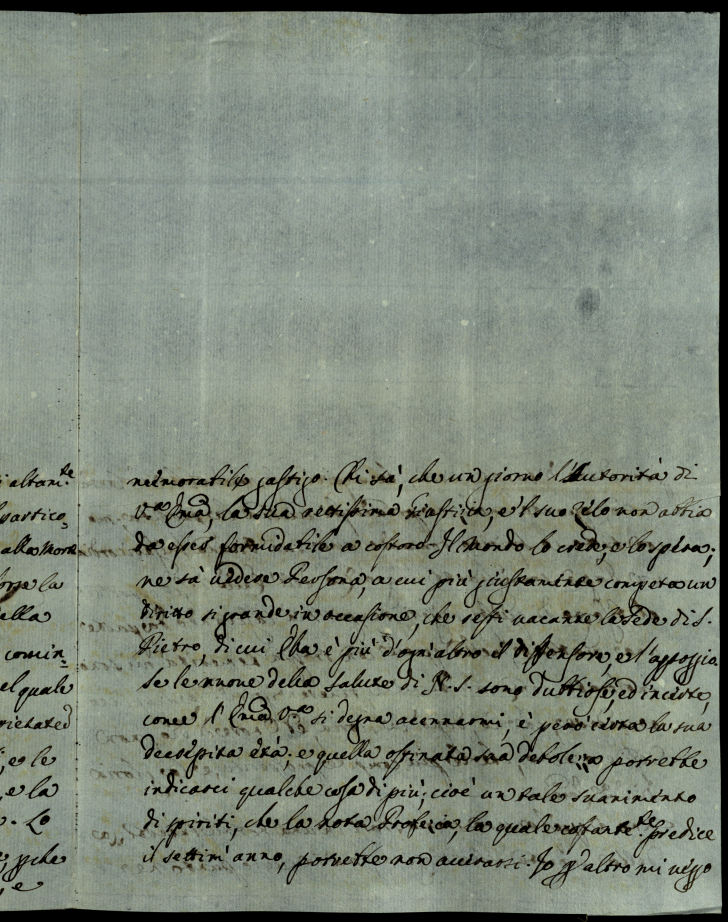 altam.te
partico,
alla morte
forse la
ella
comin,
el quale
pietate
, e le
, e la
. Lo
, pche
, e
memorabile gastigo. Chi sà, che un giorno l'Autorità di
V.ra Em̃a, la sua rettissima Giustizia, e 'l suo zelo non abbia
da esser formidabile a costoro. Il Mondo lo crede, e lo spera;
ne sà vedere Persona, a cui più giustamente competa un
diritto sì grande in occasione, che resti vacante la Sede di S.
Pietro, di cui Ella è più d'ogni altro il diffensore, e l'appoggio
Se le nuove della salute di N. S. sono dubbiose, ed incerte,
come l'Em̃a V.ra si degna accennarmi, è però certa la sua
decrepita età, e quella ostinata sua debolezza potrebbe
indicarci qualche cosa di più; cioè un tale svanimento
di spiriti, che la nota Profezia, la quale costante.te predice
il settim'anno, potrebbe non avverarsi. Io p altro mi veggo